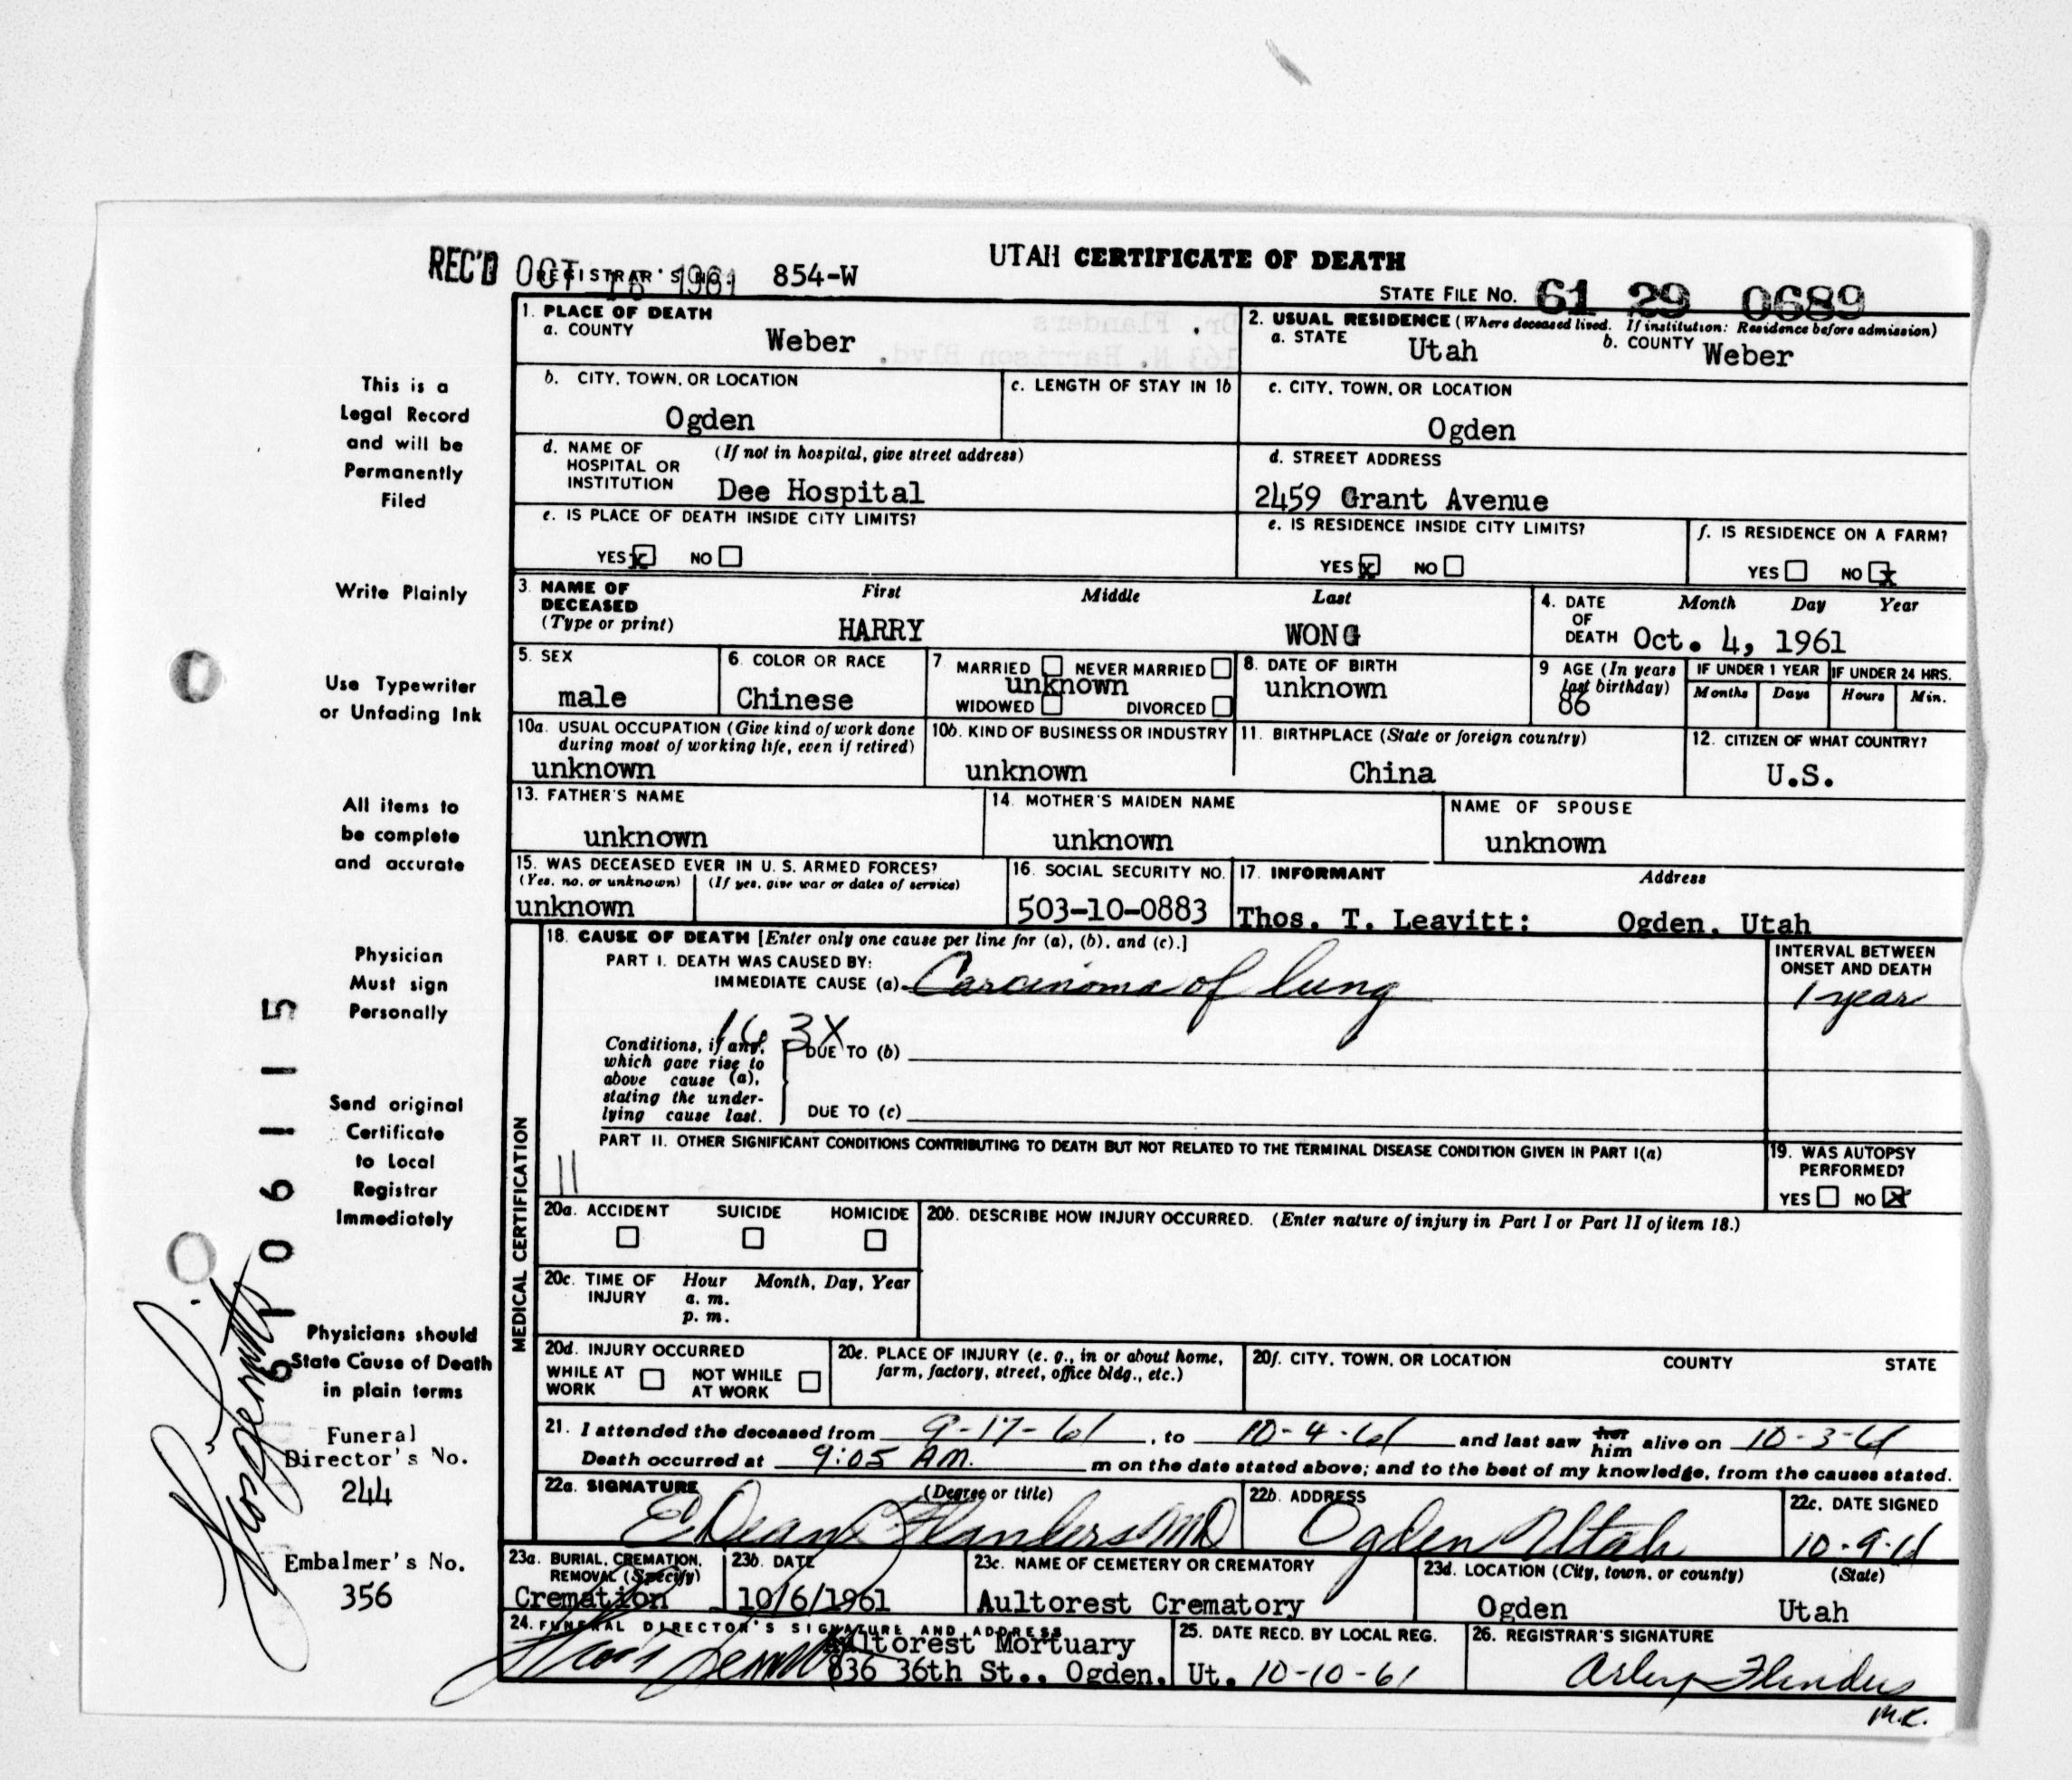 REC'D OCT 16 1961 REGISTRAR'S NO. 854-W
UTAH CERTIFICATE OF DEATH
STATE FILE NO. 61 29 0689
1. PLACE OF DEATH
a. COUNTY Weber
2. USUAL RESIDENCE (Where deceased lived. If institution: Residence before admission)
a. STATE Utah b. COUNTY Weber
b. CITY, TOWN, OR LOCATION Ogden
c. LENGTH OF STAY IN 1b
c. CITY, TOWN, OR LOCATION Ogden
d. NAME OF HOSPITAL OR INSTITUTION (If not in hospital, give street address)
Dee Hospital
d. STREET ADDRESS
2459 Grant Avenue
e. IS PLACE OF DEATH INSIDE CITY LIMITS?
YES x NO
e. IS RESIDENCE INSIDE CITY LIMITS?
YES x NO
f. IS RESIDENCE ON A FARM?
YES NO x
3. NAME OF DECEASED (Type or print)
First Middle Last
HARRY WONG
4. DATE OF DEATH Month Day Year
Oct. 4, 1961
5. SEX male
6. COLOR OR RACE Chinese
7. MARRIED NEVER MARRIED
unknown
WIDOWED DIVORCED
8. DATE OF BIRTH unknown
9 AGE (In years last birthday) 86
IF UNDER 1 YEAR Months Days
IF UNDER 24 HRS. Hours Min.
10a. USUAL OCCUPATION (Give kind of work done during most of working life, even if retired)
unknown
10b. KIND OF BUSINESS OR INDUSTRY
unknown
11. BIRTHPLACE (State or foreign country)
China
12. CITIZEN OF WHAT COUNTRY?
U.S.
13. FATHER'S NAME
unknown
14. MOTHER'S MAIDEN NAME
unknown
NAME OF SPOUSE
unknown
15. WAS DECEASED EVER IN U. S. ARMED FORCES?
(Yes, no, or unknown) (If yes, give war or dates of service)
unknown
16. SOCIAL SECURITY NO.
503-10-0883
17. INFORMANT Address
Thos. T. Leavitt: Ogden, Utah
MEDICAL CERTIFICATION
18. CAUSE OF DEATH [Enter only one cause per line for (a), (b), and (c).]
PART I. DEATH WAS CAUSED BY:
IMMEDIATE CAUSE (a) Carcinoma of lung
INTERVAL BETWEEN ONSET AND DEATH
1 year
163X
Conditions, if any, which gave rise to above cause (a), stating the underlying cause last.
DUE TO (b)
DUE TO (c)
PART II. OTHER SIGNIFICANT CONDITIONS CONTRIBUTING TO DEATH BUT NOT RELATED TO THE TERMINAL DISEASE CONDITION GIVEN IN PART I(a)
11
19. WAS AUTOPSY PERFORMED?
YES NO X
20a. ACCIDENT SUICIDE HOMICIDE
20b. DESCRIBE HOW INJURY OCCURRED. (Enter nature of injury in Part I or Part II of item 18.)
20c. TIME OF INJURY Hour Month, Day, Year
a. m.
p. m.
20d. INJURY OCCURRED
WHILE AT WORK NOT WHILE AT WORK
20e. PLACE OF INJURY (e. g., in or about home, farm, factory, street, office bldg., etc.)
20f. CITY, TOWN, OR LOCATION COUNTY STATE
21. I attended the deceased from 9-17-61, to 10-4-61 and last saw her him alive on 10-3-61
Death occurred at 9:05 AM. m on the date stated above; and to the best of my knowledge, from the causes stated.
22a. SIGNATURE (Degree or title)
E Dean Flanders MD
22b. ADDRESS
Ogden Utah
22c. DATE SIGNED
10-9-61
23a. BURIAL, CREMATION, REMOVAL (Specify)
Cremation
23b. DATE
10/6/1961
23c. NAME OF CEMETERY OR CREMATORY
Aultorest Crematory
23d. LOCATION (City, town, or county) (State)
Ogden Utah
24. FUNERAL DIRECTOR'S SIGNATURE AND ADDRESS
Aultorest Mortuary
836 36th St., Ogden, Ut.
25. DATE RECD. BY LOCAL REG.
10-10-61
26. REGISTRAR'S SIGNATURE
Arley Flinders
m.c.
This is a
Legal Record
and will be
Permanently
Filed
Write Plainly
Use Typewriter
or Unfading Ink
All items to
be complete
and accurate
Physician
Must sign
Personally
Send original
Certificate
to Local
Registrar
Immediately
Physicians should
State Cause of Death
in plain terms
Funeral
Director's No.
244
Embalmer's No.
356